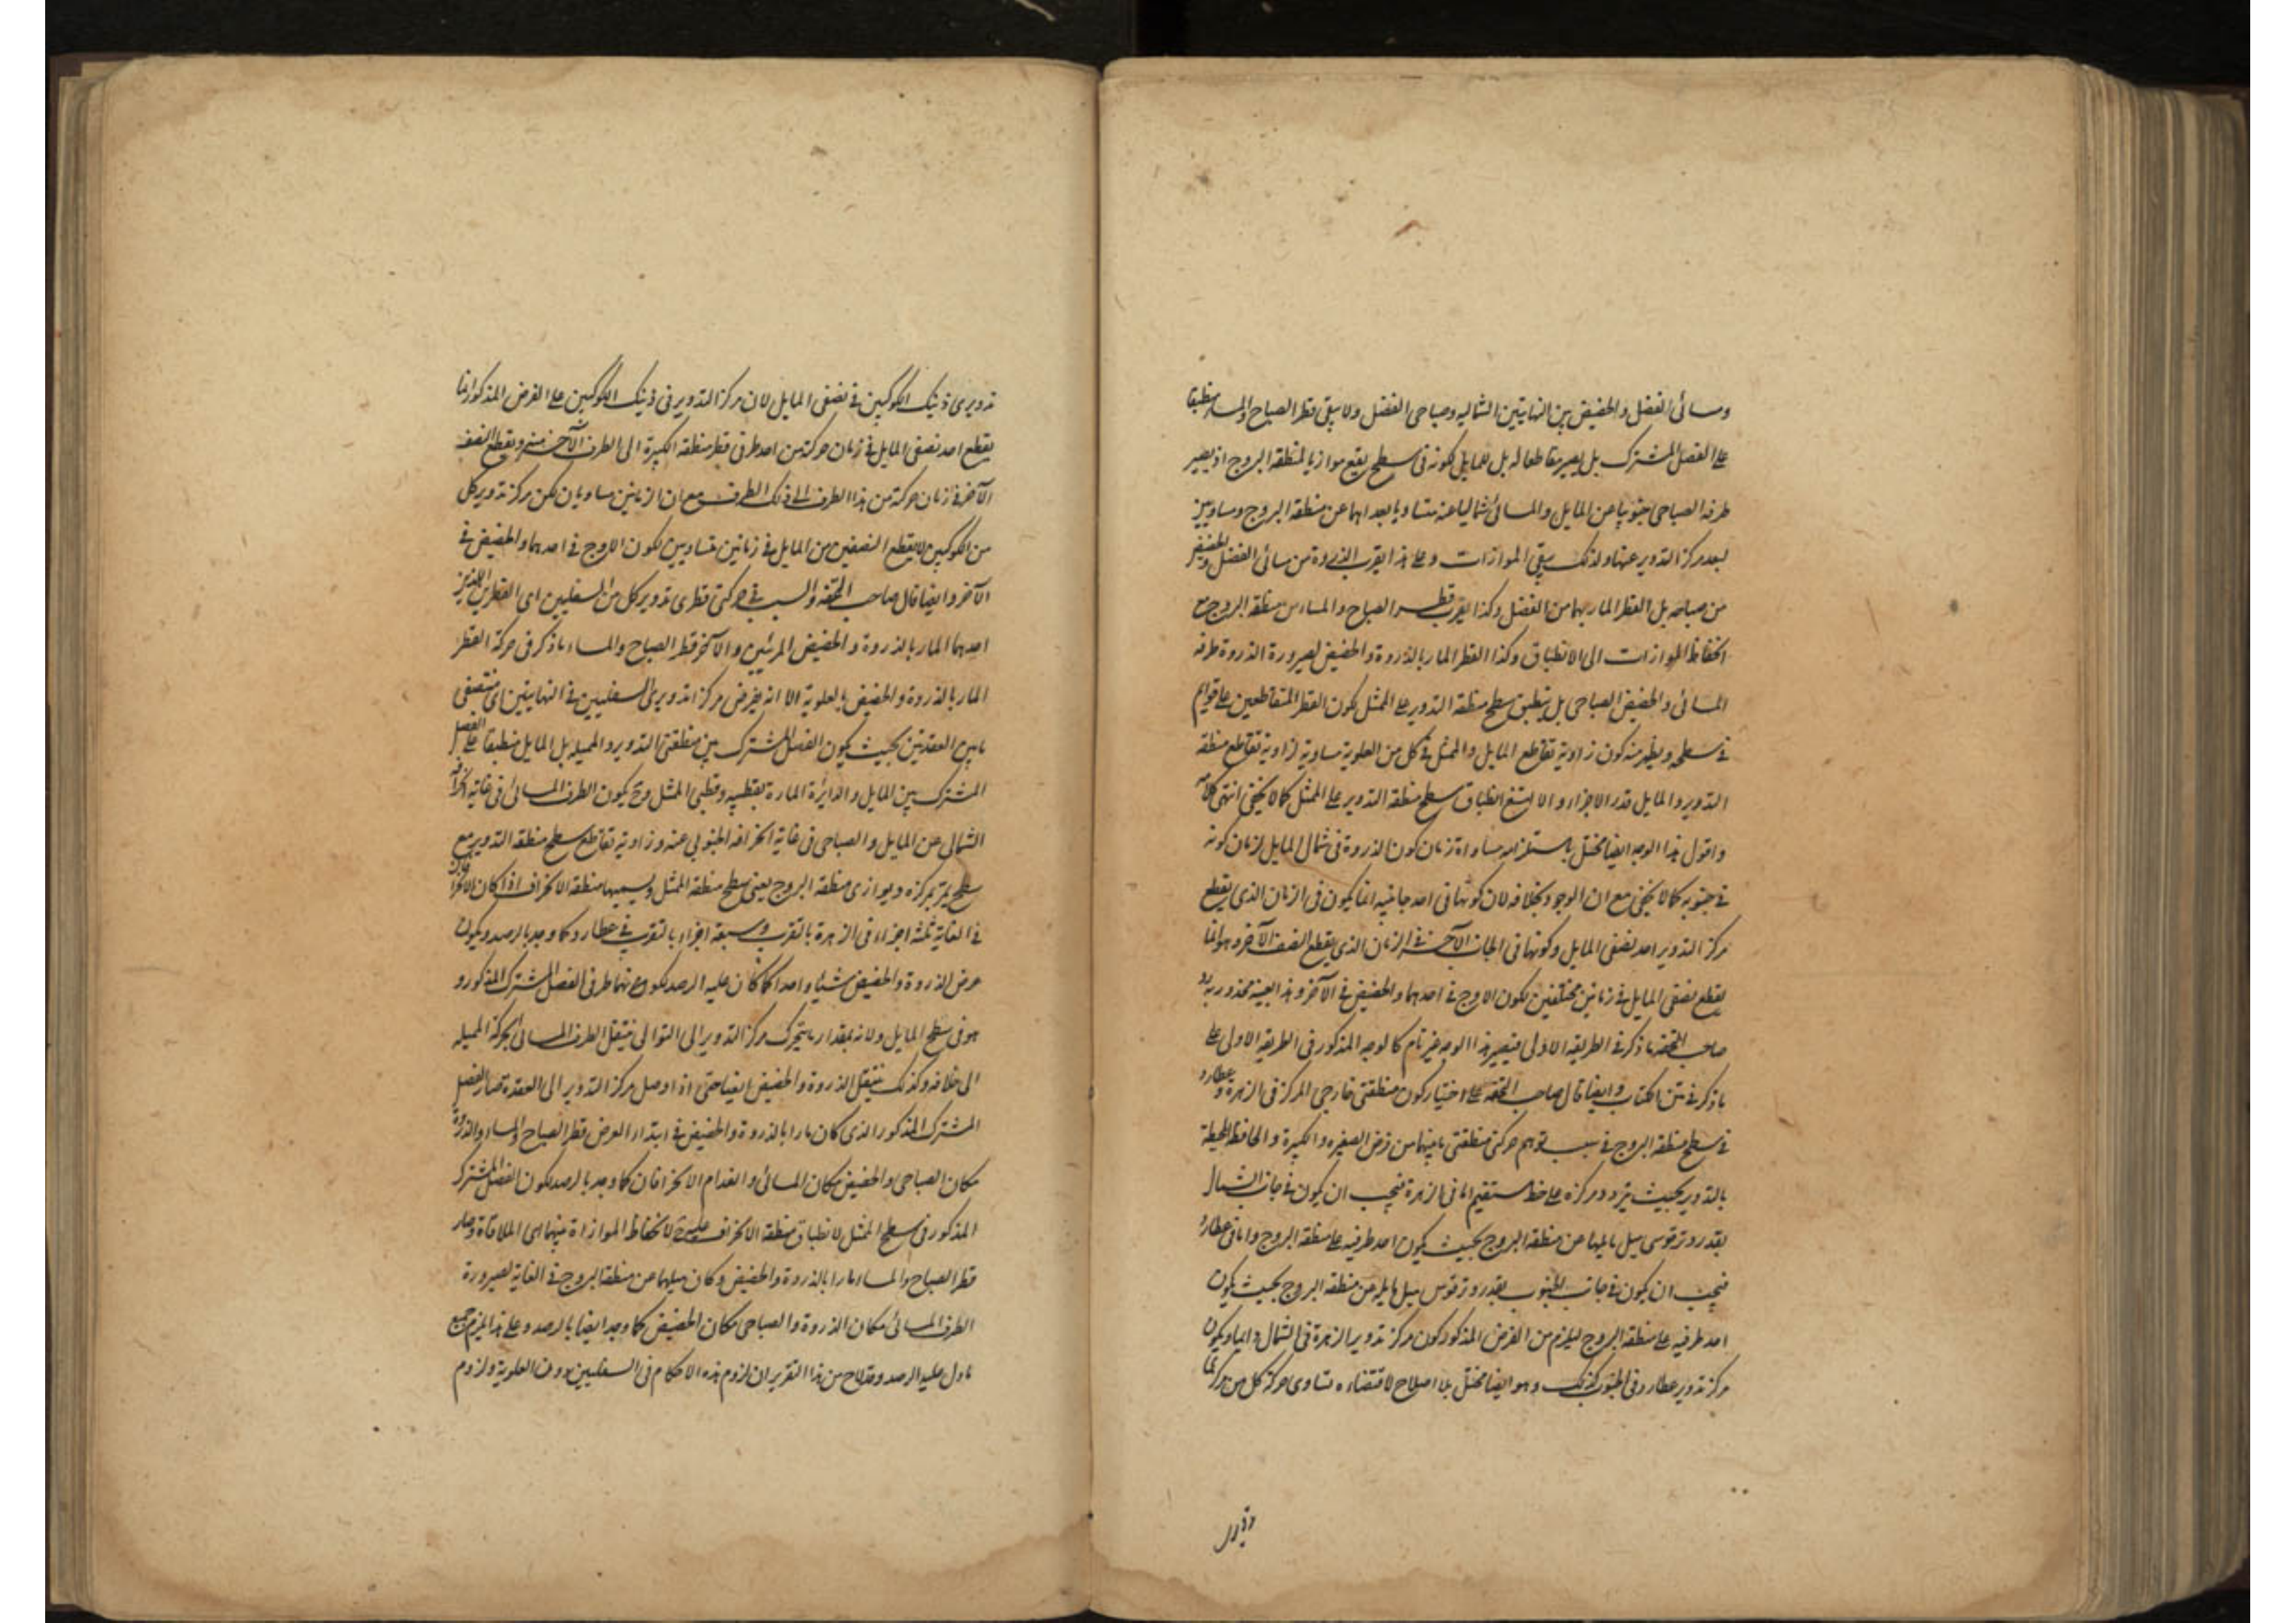 ومسائى الفضل والحضيض بين النهايتين الشماليه وصباحى الفضل ولا يبقى قطر الصباح والمساء منطبقا
على الفصل المشترك بل يصير مقاطعا له بل للمايل لكونه فى سطح يقع موازيا لمنطقه البروج اذ يصير
طرفه الصباحى جنوبيا عن المايل والمسائى شماليا عنه متساويا بعداهما عن منطقه البروج ومساويين
لبعد مركز التدوير عنها ولذلك يبقى الموازات وعلى هذا يقرب الذروة من مسائى الفضل والحضيض
من صباحه بل القطر المار بهما من الفضل وكذا يقرب قطر الصباح والمساء من منطقه البروج مع
انحفاظ الموازات الى الانطباق وكذا القطر المار بالذروة والحضيض لصيرورة الذروة طرفه
المسائى والحضيض الصباحى بل ينطبق سطح منطقه التدوير على الممثل لكون القطر المتقاطعين على قوايم
فى سطحه ويظهر منه كون زاوية تقاطع المايل والممثل فى كل من العلوية مساوية لزاوية تقاطع منطقه
التدوير والمايل قدر الاجزاء والا امتنع انطباق سطح منطقه التدوير على الممثل كما لا يخفى انتهى كلامه
واقول هذا الوجه ايضا مختل باستلزامه مساواة زمان كون الذروة فى شمال المايل لزمان كونه
فى جنوبه كما لا يخفى مع ان الوجود بخلافه لان كونها فى احد جانبيه انما يكون فى الزمان الذى يقطع
مركز التدوير احد نصفى المايل وكونها فى الجانب الآخر فى الزمان الذى يقطع النصف الآخر وهو انما
يقطع نصفى المايل فى زمانين مختلفين لكون الاوج فى احدهما والحضيض فى الآخر وهذا بعينه محذور يرد
صاحب التحفه ما ذكر فى الطريقه الاولى فيصير هذا الوجه غير تام كالوجه المذكور فى الطريقه الاولى على
ما ذكر فى متن الكتاب وايضا قال صاحب التحفه على اختيار كون منطقتى خارجى المركز فى الزهرة وعطارد
فى سطح منطقه البروج فى سبب توهم حركتى منطقتى ما بينهما من فرض الصغيره والكبيرة والحافظه المحيطة
بالتدوير بحيث يتردد مركزه على خط مستقيم اما فى الزهرة فيجب ان يكون فى جانب الشمال
بقدر وتر قوسى ميل مايلها عن منطقه البروج بحيث يكون احد طرفيه على منطقه البروج واما فى عطارد
فيجب ان يكون فى جانب الجنوب بقدر وتر قوس ميل مايله عن منطقه البروج بحيث يكون
احد طرفيه على منطقه البروج ليلزم من الفرض المذكور كون مركز تدوير الزهرة فى الشمال دايما ويكون
مركز تدوير عطارد فى الجنوب كذلك وهو ايضا مختل بلا اصلاح لاقتضاءه تساوى حركة كل من مركزى
تدويرى ذينك الكوكبين فى نصفى المايل لان مركز التدوير فى ذينك الكوكبين على الفرض المذكور انما
يقطع احد نصفى المايل فى زمان حركته من احد طرفى قطر منطقه الكبيرة الى الطرف الآخر منه ويقطع النصف
الآخر فى زمان حركته من هذا الطرف الى ذلك الطرف مع ان الزمانين مساويان لكن مركز تدوير كل
من الكوكبين لا يقطع النصفين من المايل فى زمانين متساويين لكون الاوج فى احدهما والحضيض فى
الآخر وايضا قال صاحب التحفه والسبب فى حركتى قطرى تدوير كل من السفليين اى القطرين اللذين
احدهما المار بالذروة والحضيض المرئيين والآخر قطر الصباح والمساء ما ذكر فى حركة القطر
المار بالذروة والحضيض بالعلوية الا انه يفرض مركز تدويرى السفليين فى النهايتين اى منتصفى
ما بين العقدتين بحيث يكون الفصل المشترك بين منطقتى التدوير والمميله بل المايل منطبقا على الفصل
المشترك بين المايل والدائرة المارة بقطبيه وقطبى الممثل وح يكون الطرف المسائى فى غاية انحرافه
الشمالى عن المايل والصباحى فى غاية انحرافه الجنوبى عنه وزاوية تقاطع سطح منطقه التدوير مع
سطح يمر بمركزه ويوازى منطقه البروج يعنى سطح منطقه الممثل ويسميها منطقه الانحراف اذا كان الانحراف
فى الغاية ثلثه اجزاء فى الزهرة بالتقريب وسبعه اجزاء بالتقريب فى عطارد كما وجد بالرصد ويكون
عرض الذروة والحضيض شيئا واحدا كما كان عليه الرصد لكونهما طرفى الفصل المشترك المذكور و
هو فى سطح المايل ولانه بمقدار ما يتحرك مركز التدوير الى التوالى ينتقل الطرف المسائى بحركة المميله
الى خلافه وكذلك ينتقل الذروة والحضيض ايضا حتى اذا وصل مركز التدوير الى العقدة صار الفصل
المشترك المذكور الذى كان مارا بالذروة والحضيض فى ابتداء العرض قطر الصباح والمساء والذروة
مكان الصباحى والحضيض مكان المسائى وانعدام الانحرافان كما وجد بالرصد لكون الفصل المشترك
المذكور فى سطح الممثل لانطباق منطقه الانحراف عليه لانحفاظ الموازاة بينهما الى الملاقاة وصار
قطر الصباح والمساء مارا بالذروة والحضيض وكان ميلهما عن منطقة البروج فى الغاية لصيرورة
الطرف المسائى مكان الذروة والصباحى مكان الحضيض كما وجد ايضا بالرصد وعلى هذا يلزم جميع
ما دل عليه الرصد وقد لاح من هذا التقرير ان لزوم هذه الاحكام فى السفليين دون العلوية ولزوم